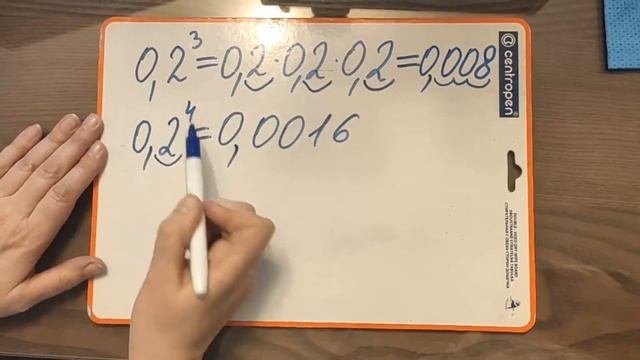 0,2³=0,2·0,2·0,2=0,008
0,2⁴=0,0016
centropen